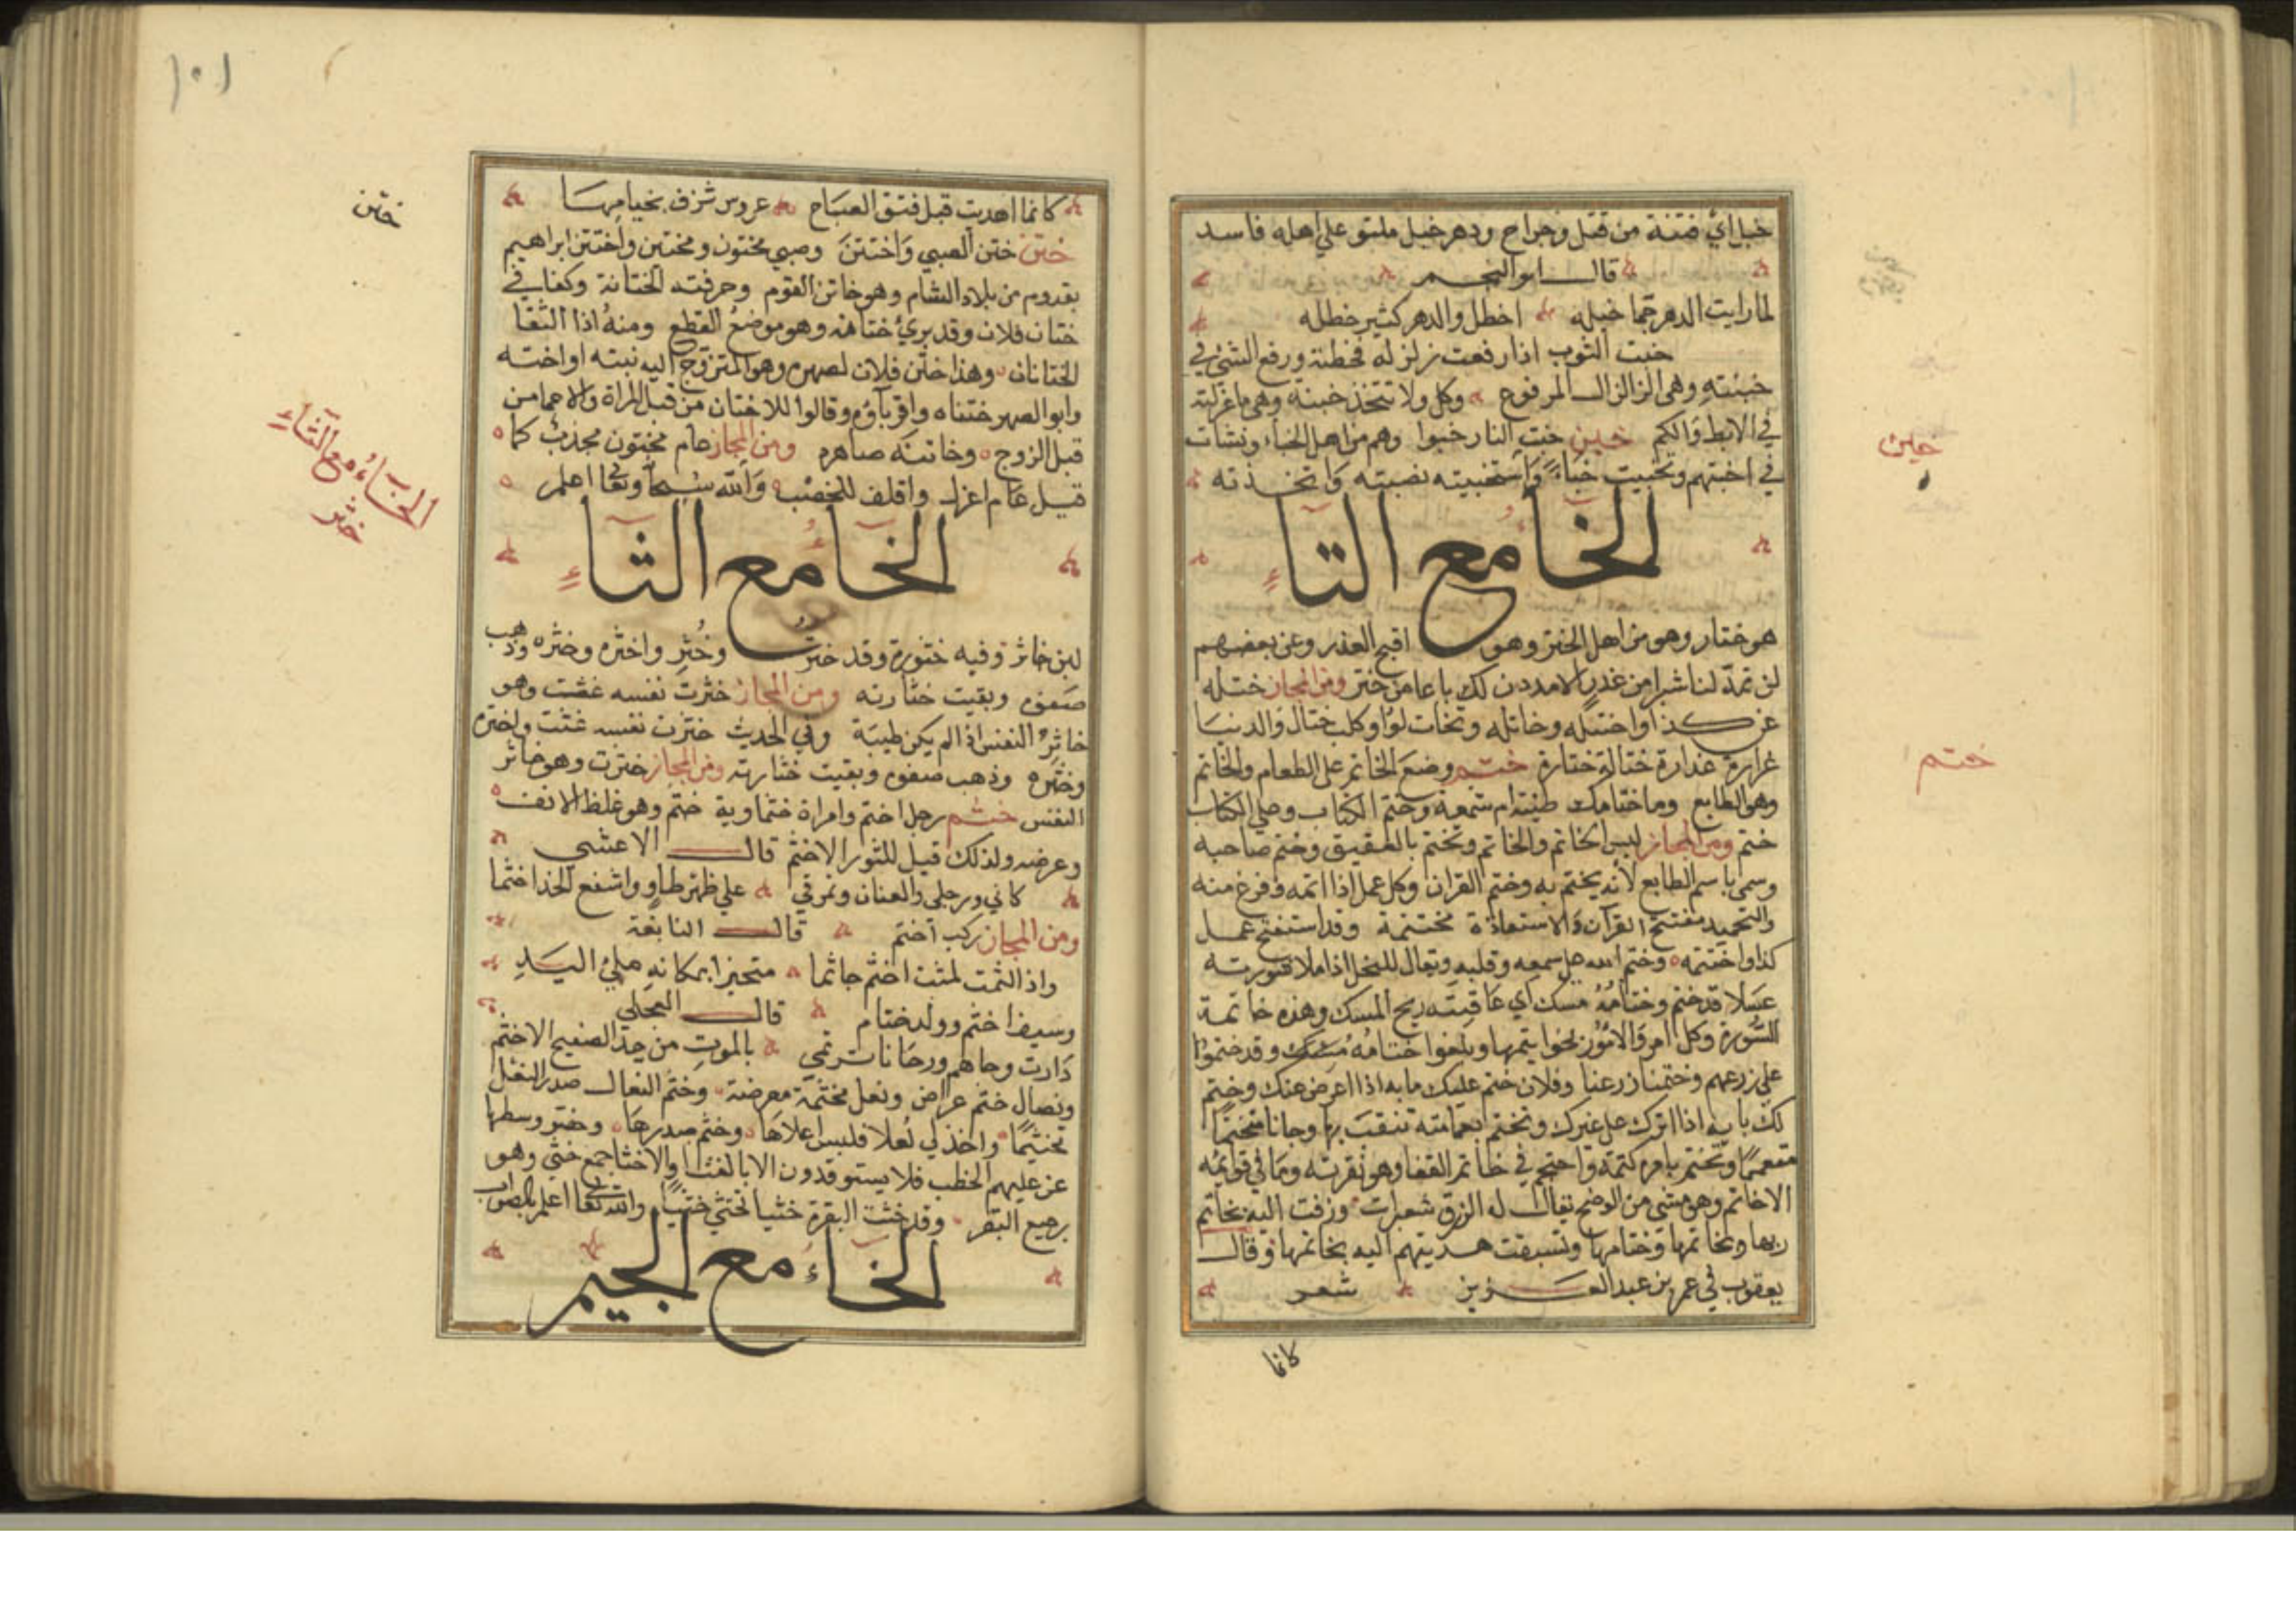 خبل اي فتنة من قتل وجراح ودهر خبل ملتو علي اهله فاسد
قال ابو النجم
لما رايت الدهر جما خبله اخطل والدهر كثير خطله
خبنت الثوب اذا رفعت زلزله فخطته ورفع الشئ في
خبنته وهي الزلازل المرفوع وكل ولا تتخذ خبنة وهي ما غزلته
في الابط والكم خبن خبت النار خبوا وهم من اهل الخباء ونشات
في اخبتهم وتخبيت خباء واستخبيته نصبته واتخذته
الخا مع التاء
هو ختار وهو من اهل الختر وهو اقبح الغدر وعن بعضهم
لن تمد لنا شبرا من غدر الا مددن لك باعا من ختر ومن المجاز ختله
عن كذا واختتله وخاتله وتخاتلوا وكلب ختال والدنيا
غرارة غدارة ختالة ختارة ختم وضع الخاتم على الطعام والخاتم
وهو الطابع وما ختامك طينة ام شمعة وختم الكتاب وعلي الكتاب
ختم ومن المجاز لبس الخاتم والخاتم وتختم بالعقيق وختم صاحبه
وسمي باسم الطابع لأنه يختم به وختم القران وكل عمل اذا اتمه وفرغ منه
والتحميد مفتتح القرآن والاستعاذة مختتمة وقد استفتح عمل
كذا واختتمه وختم الله على سمعه وقلبه ويقال للنحل اذا ملا شورته
عسلا قد ختم وختامه مسك اي عاقبته ريح المسك وهذه خاتمة
السورة وكل امر والامور بخواتيمها وبلغوا ختامه مسك وقد ختموا
على زرعهم وختمنا زرعنا وفلان ختم عليك بابه اذا اعرض عنك وختم
لك بابه اذا اثرك على غيرك وتختم بعمامته تنقب بها وجانا متختما
متعمما وتختم بامره كتمه واحتجم في خاتم القفا وهو نقرته وما في قوايمه
الا خاتم وهو شئ من الوضح يقال له الزرق شعيرات وزفت اليه بخاتم
ربها وبخاتمها وختامها وتسبقت هديتهم اليه بخاتمها وقال
يعقوب في عمر بن عبد العزيز شعر
كانما
خبن
ختم
١٠١
كانما اهديت قبل فتق الصباح عروس تزف بخيامها
ختن ختن الصبي واختتن وصبي مختون ومختتن واختتن ابراهيم
بقدوم من بلاد الشام وهو خاتن القوم وحرفته الختانة وكفا في
ختان فلان وقد بري ختانه وهو موضع القطع ومنه اذا التقا
الختانان وهذا ختن فلان لصهره وهو المتزوج اليه نبته او اخته
وابو الصهر ختناه واقرباؤه وقالوا للاختان من قبل المراة والاحما من
قبل الزوج وخاتنه صاهره ومن المجاز عام مختون مجذب كما
قيل عام اغزل واقلف للخصب والله سبحا وتعا اعلم
الخا مع الثاء
لبن خاثر وفيه خثورة وقد خثرت وخثر واخثره وخثره وذهب
صفوه وبقيت خثارته ومن المجاز خثرت نفسه غثت وهو
خاثر النفس اذا لم يكن طيبة وفي الحديث خثرت نفسه غثت واخثره
وخثره وذهب صفوه وبقيت خثارته ومن المجاز خثرت وهو خاثر
النفس خثم رجل اخثم وامراة خثماوية خثم وهو غلظ الانف
وعرضه ولذلك قيل للثور الاخثم قال الاعشي
كاني ورحلى والعنان ونمرقي على ظهر طاو واشفع الخذ اخثما
ومن المجاز ركب اخثم قال النابغة
واذا لثمت لمثت اخثم جاثما متحيزا بمكانه ملئ اليد
وسيف اخثم وولد ختام قال العجلي
دارت رحاهم ورحانا ترتمي بالموت من حد الصفيح الاخثم
ونصال خثم عراض ونعل مختمة معرضة وختم النعال صدر النعل
تخثيما واخذ لي نعلا فلبس اعلاها وخثم صدرها وخصر وسطها
عز عليهم الخطب فلا يستوقدون الا بالغثا والاخثا جمع خثي وهو
رجيع البقر وقد خثت البقرة خثيا تخثي خثيا والله تعا اعلم بالصواب
الخاء مع الجيم
ختن
الخاء مع الثاء
خثر